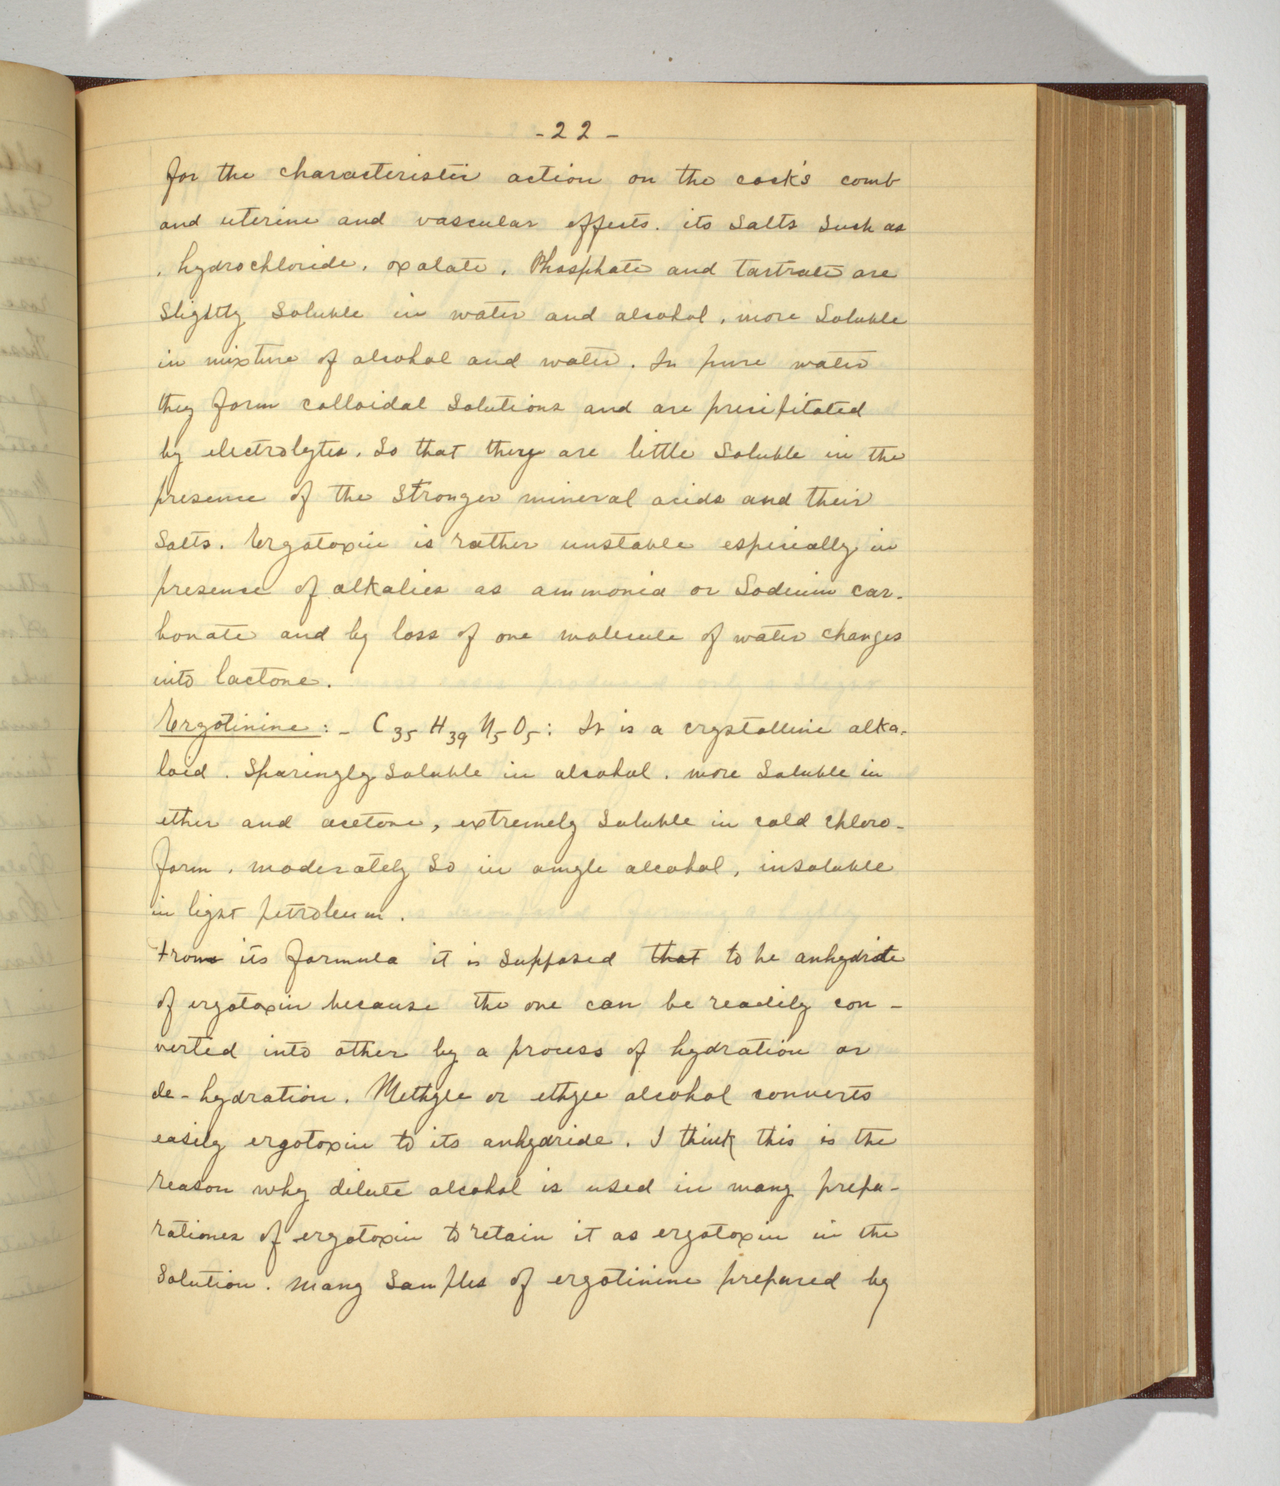 - 22 -
for the characteristic action on the cock's comb
and uterine and vascular effects. its salts such as
, hydrochloride, oxalate, Phosphate and tartrate are
slightly soluble in water and alcohol, more soluble
in mixture of alcohol and water. In pure water
they form colloidal solutions and are precipitated
by electrolytes. So that they are little soluble in the
presence of the stronger mineral acids and their
salts. Ergotoxin is rather unstable especially in
presence of alkalies as ammonia or Sodium car-
bonate and by loss of one molecule of water changes
into lactone.
Ergotinine :- C35 H39 N5 O5: It is a crystalline alka-
loid. Sparingly soluble in alcohol. more soluble in
ether and acetone, extremely soluble in cold chloro-
form. moderately so in amyle alcohol, insoluble
in light petroleum.
From its formula it is supposed that to be anhydride
of ergotoxin because the one can be readily con-
verted into other by a process of hydration or
de-hydration. Methyle or ethyle alcohol converts
easily ergotoxin to its anhydride. I think this is the
reason why dilute alcohol is used in many prepa-
rationes of ergotoxin to retain it as ergotoxin in the
solution. Many samples of ergotinine prepared by